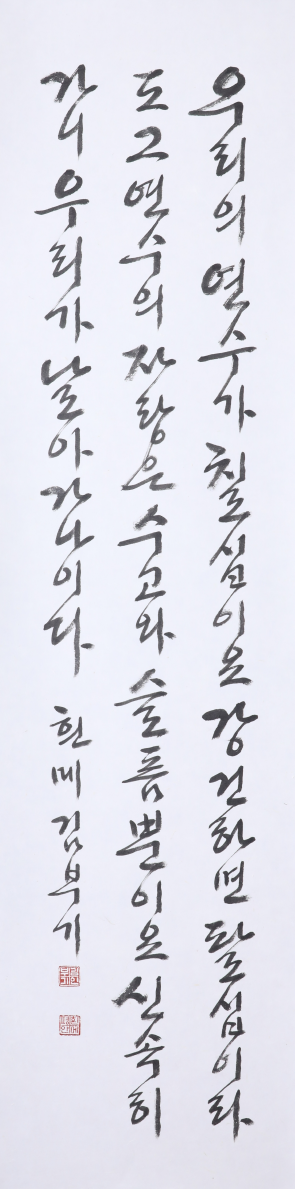 우리의 연수가 칠십이요 강건하면 팔십이라
도 그 연수의 자랑은 수고와 슬픔뿐이요 신속히
가니 우리가 날아가나이다 흰메 김부기